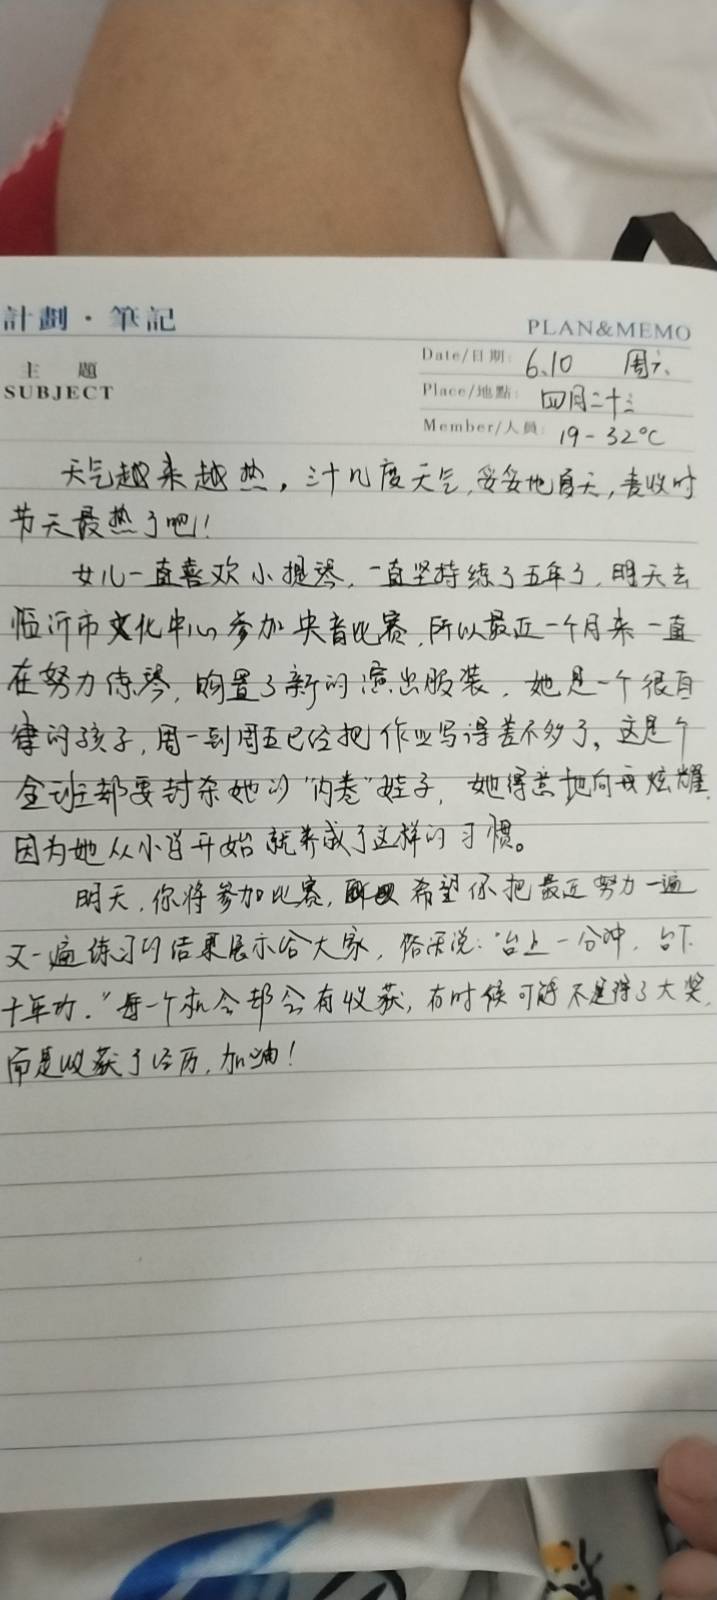 計劃·筆記
PLAN&MEMO
主題
SUBJECT
Date/日期: 6.10 周六
Place/地點: 四月二十三
Member/人員: 19-32℃
天气越来越热，三十几度天气，妥妥地夏天，麦收时
节天最热了吧！
女儿一直喜欢小提琴，一直坚持练了五年了，明天去
临沂市文化中心参加央音比赛，所以最近一个月来一直
在努力练琴，购置了新的演出服装，她是一个很自
律的孩子，周一到周五已经把作业写得差不多了，这是个
全班都要封杀她的"内卷"娃子，她得意地向我炫耀，
因为她从小学开始就养成了这样的习惯。
明天，你将参加比赛，希望你把最近努力一遍
又一遍练习的结果展示给大家，俗话说："台上一分钟，台下
十年功。"每一个机会都会有收获，有时候可能不是得了大奖，
而是收获了经历，加油！